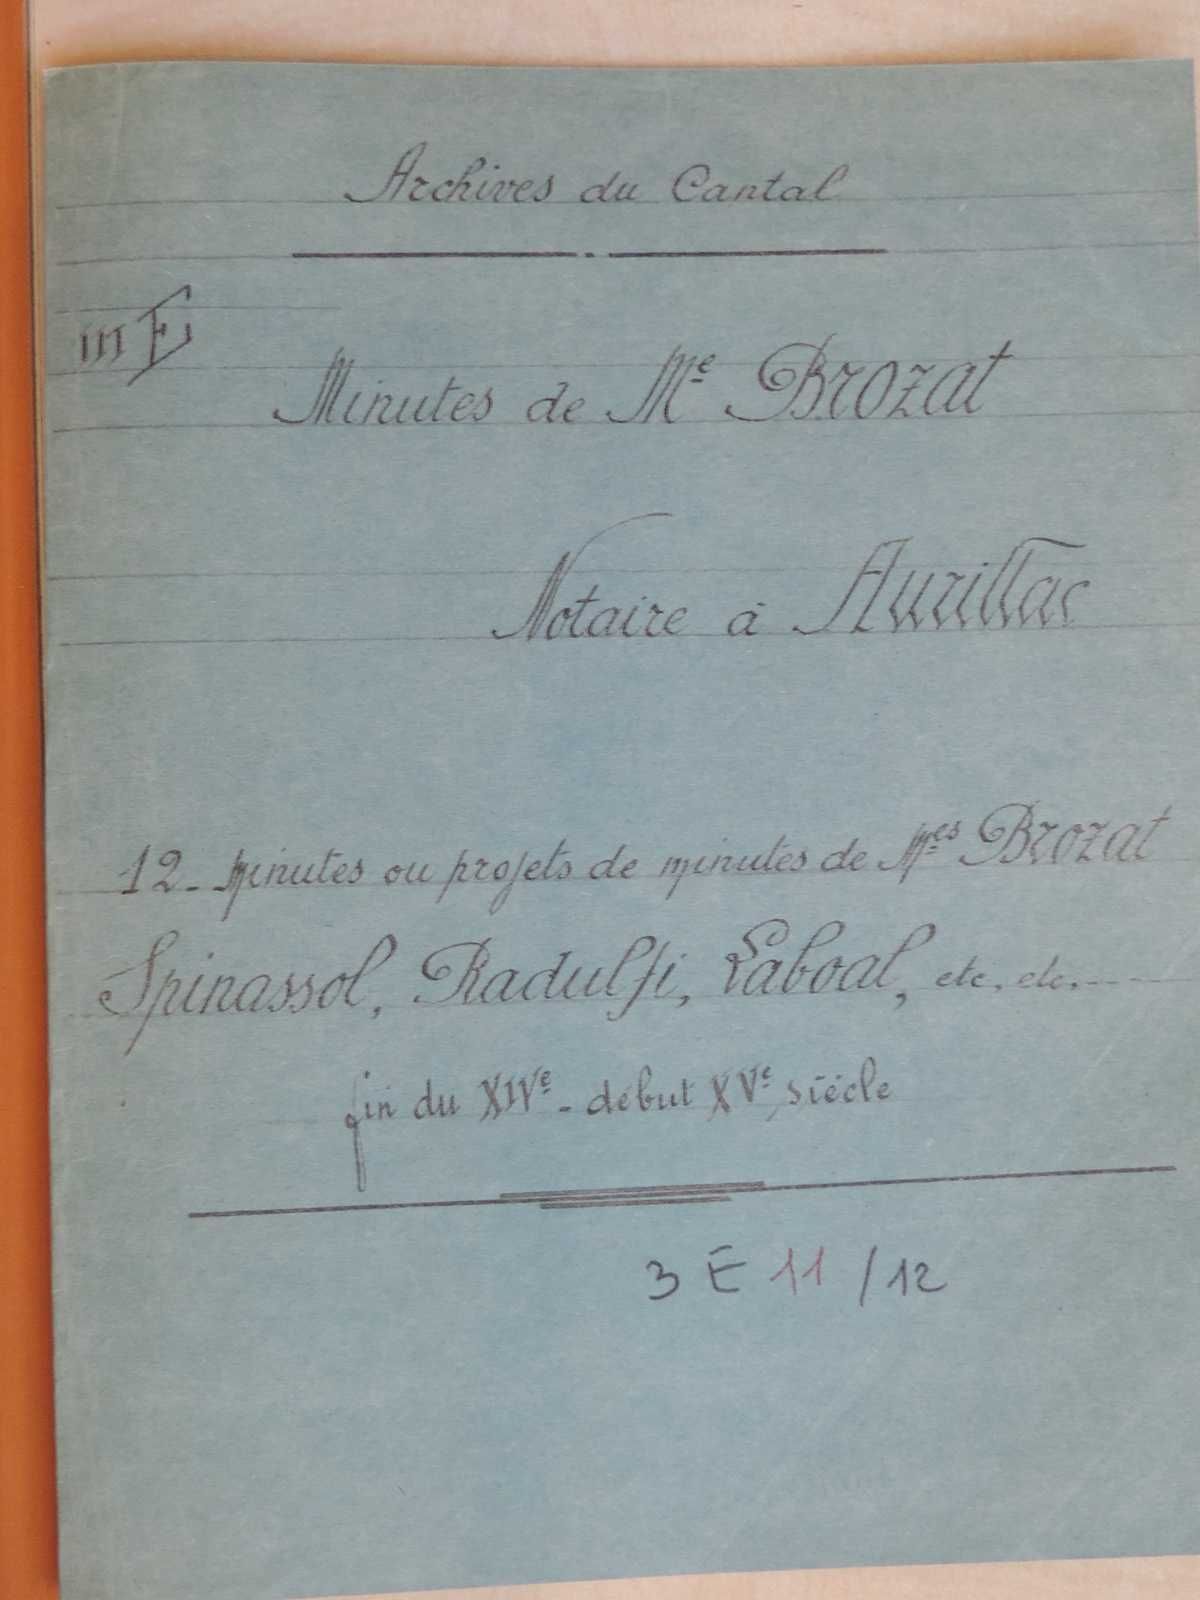 Archives du Cantal
III E
Minutes de Me Brozat
Notaire à Aurillac
12 - Minutes ou projets de minutes de Mes Brozat
Spinassol, Radulfi, Laboal, etc, etc, ...
fin du XIVe - début XVe siècle
3 E 11 / 12